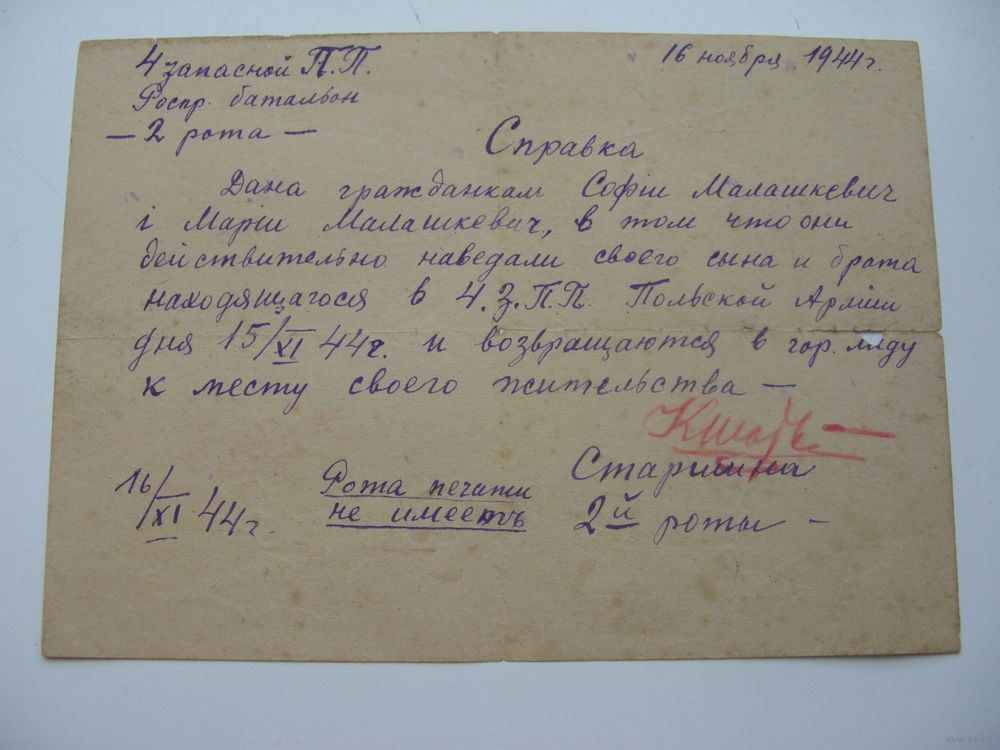 4 запасной П.П.
16 ноября 1944 г.
Роспр. батальон
— 2 рота —
Справка
Дана гражданкам Софіи Малашкевич
і Маріи Малашкевич, в том что они
действительно наведали своего сына и брата
находящагося в 4.З.П.П. Польской Арміи
дня 15/XI 44 г. и возвращаются в гор. Лиду
к месту своего жительства —
Старшина
2й роты —
Рота печати
не имеетъ
16/XI 44 г.
www.ay.by